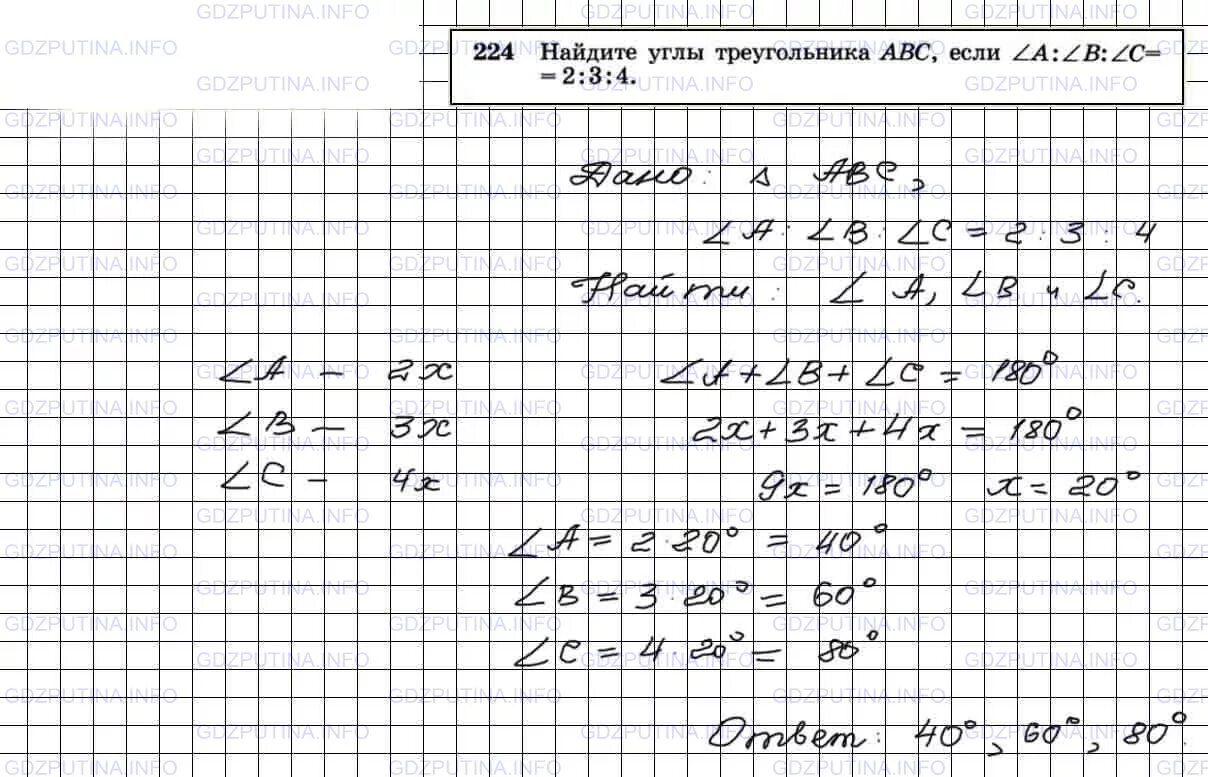 224 Найдите углы треугольника ABC, если ∠A:∠B:∠C=
=2:3:4.
Дано: △ ABC,
∠A:∠B:∠C = 2:3:4
Найти: ∠A, ∠B и ∠C.
∠A – 2x
∠A+∠B+∠C = 180°
∠B – 3x
2x+3x+4x = 180°
∠C – 4x
9x = 180° x = 20°
∠A = 2·20° = 40°
∠B = 3·20° = 60°
∠C = 4·20° = 80°
Ответ: 40°, 60°, 80°.
GDZPUTINA.INFO